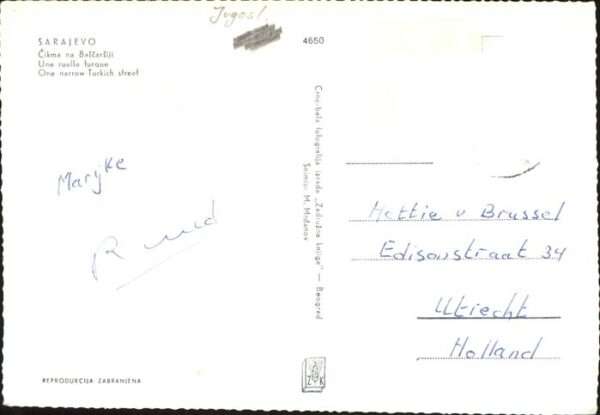 Jugosl.
SARAJEVO
Čikma na Baščaršiji
Une ruelle turque
One narrow Turkich street
4650
Crno-bela fotografija izrada „Zadružna knjiga" — Beograd
Snimio: M.
Maryke
Ruud
Hettie v Brussel
Edisonstraat 34
Utrecht
Holland
REPRODUKCIJA ZABRANJENA